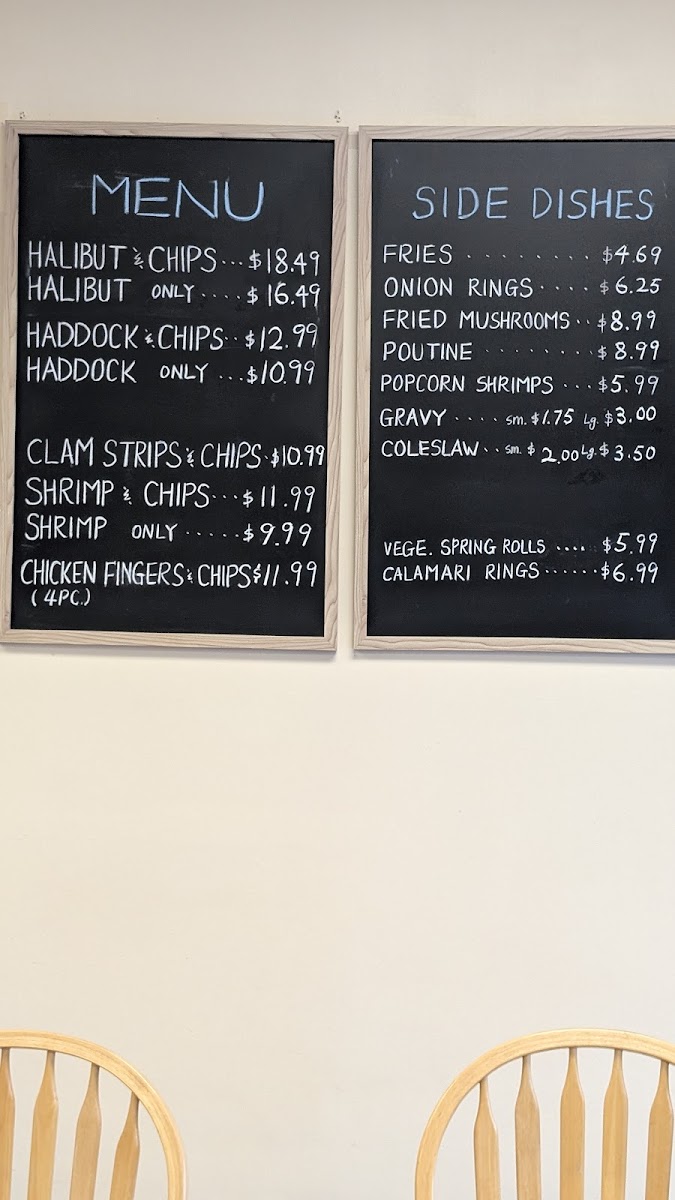 MENU
HALIBUT & CHIPS...$18.49
HALIBUT ONLY....$16.49
HADDOCK & CHIPS..$12.99
HADDOCK ONLY...$10.99
CLAM STRIPS & CHIPS.$10.99
SHRIMP & CHIPS...$11.99
SHRIMP ONLY.....$9.99
CHICKEN FINGERS & CHIPS $11.99
(4PC.)
SIDE DISHES
FRIES........$4.69
ONION RINGS....$6.25
FRIED MUSHROOMS..$8.99
POUTINE.......$8.99
POPCORN SHRIMPS...$5.99
GRAVY....sm.$1.75 Lg.$3.00
COLESLAW..sm.$2.00 Lg.$3.50
VEGE. SPRING ROLLS....$5.99
CALAMARI RINGS......$6.99